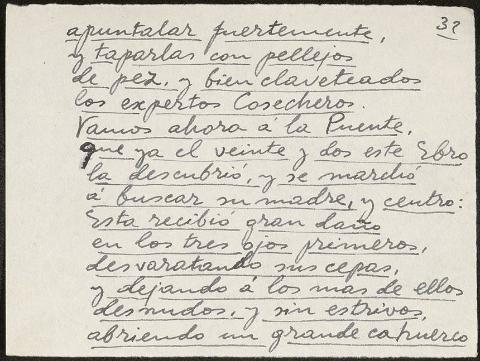 3ª
apuntalar fuertemente,
y taparlas con pellejos
de pez, y bien claveteados
los expertos Cosecheros.
Vamos ahora á la Puente,
que ya el veinte y dos este Ebro
la descubrió, y se marchó
á buscar su madre, y centro:
Esta recibió gran daño
en los tres ojos primeros,
desvaratando sus cepas,
y dejando á los mas de ellos
desnudos, y sin estrivos,
abriendo un grande cahuerco